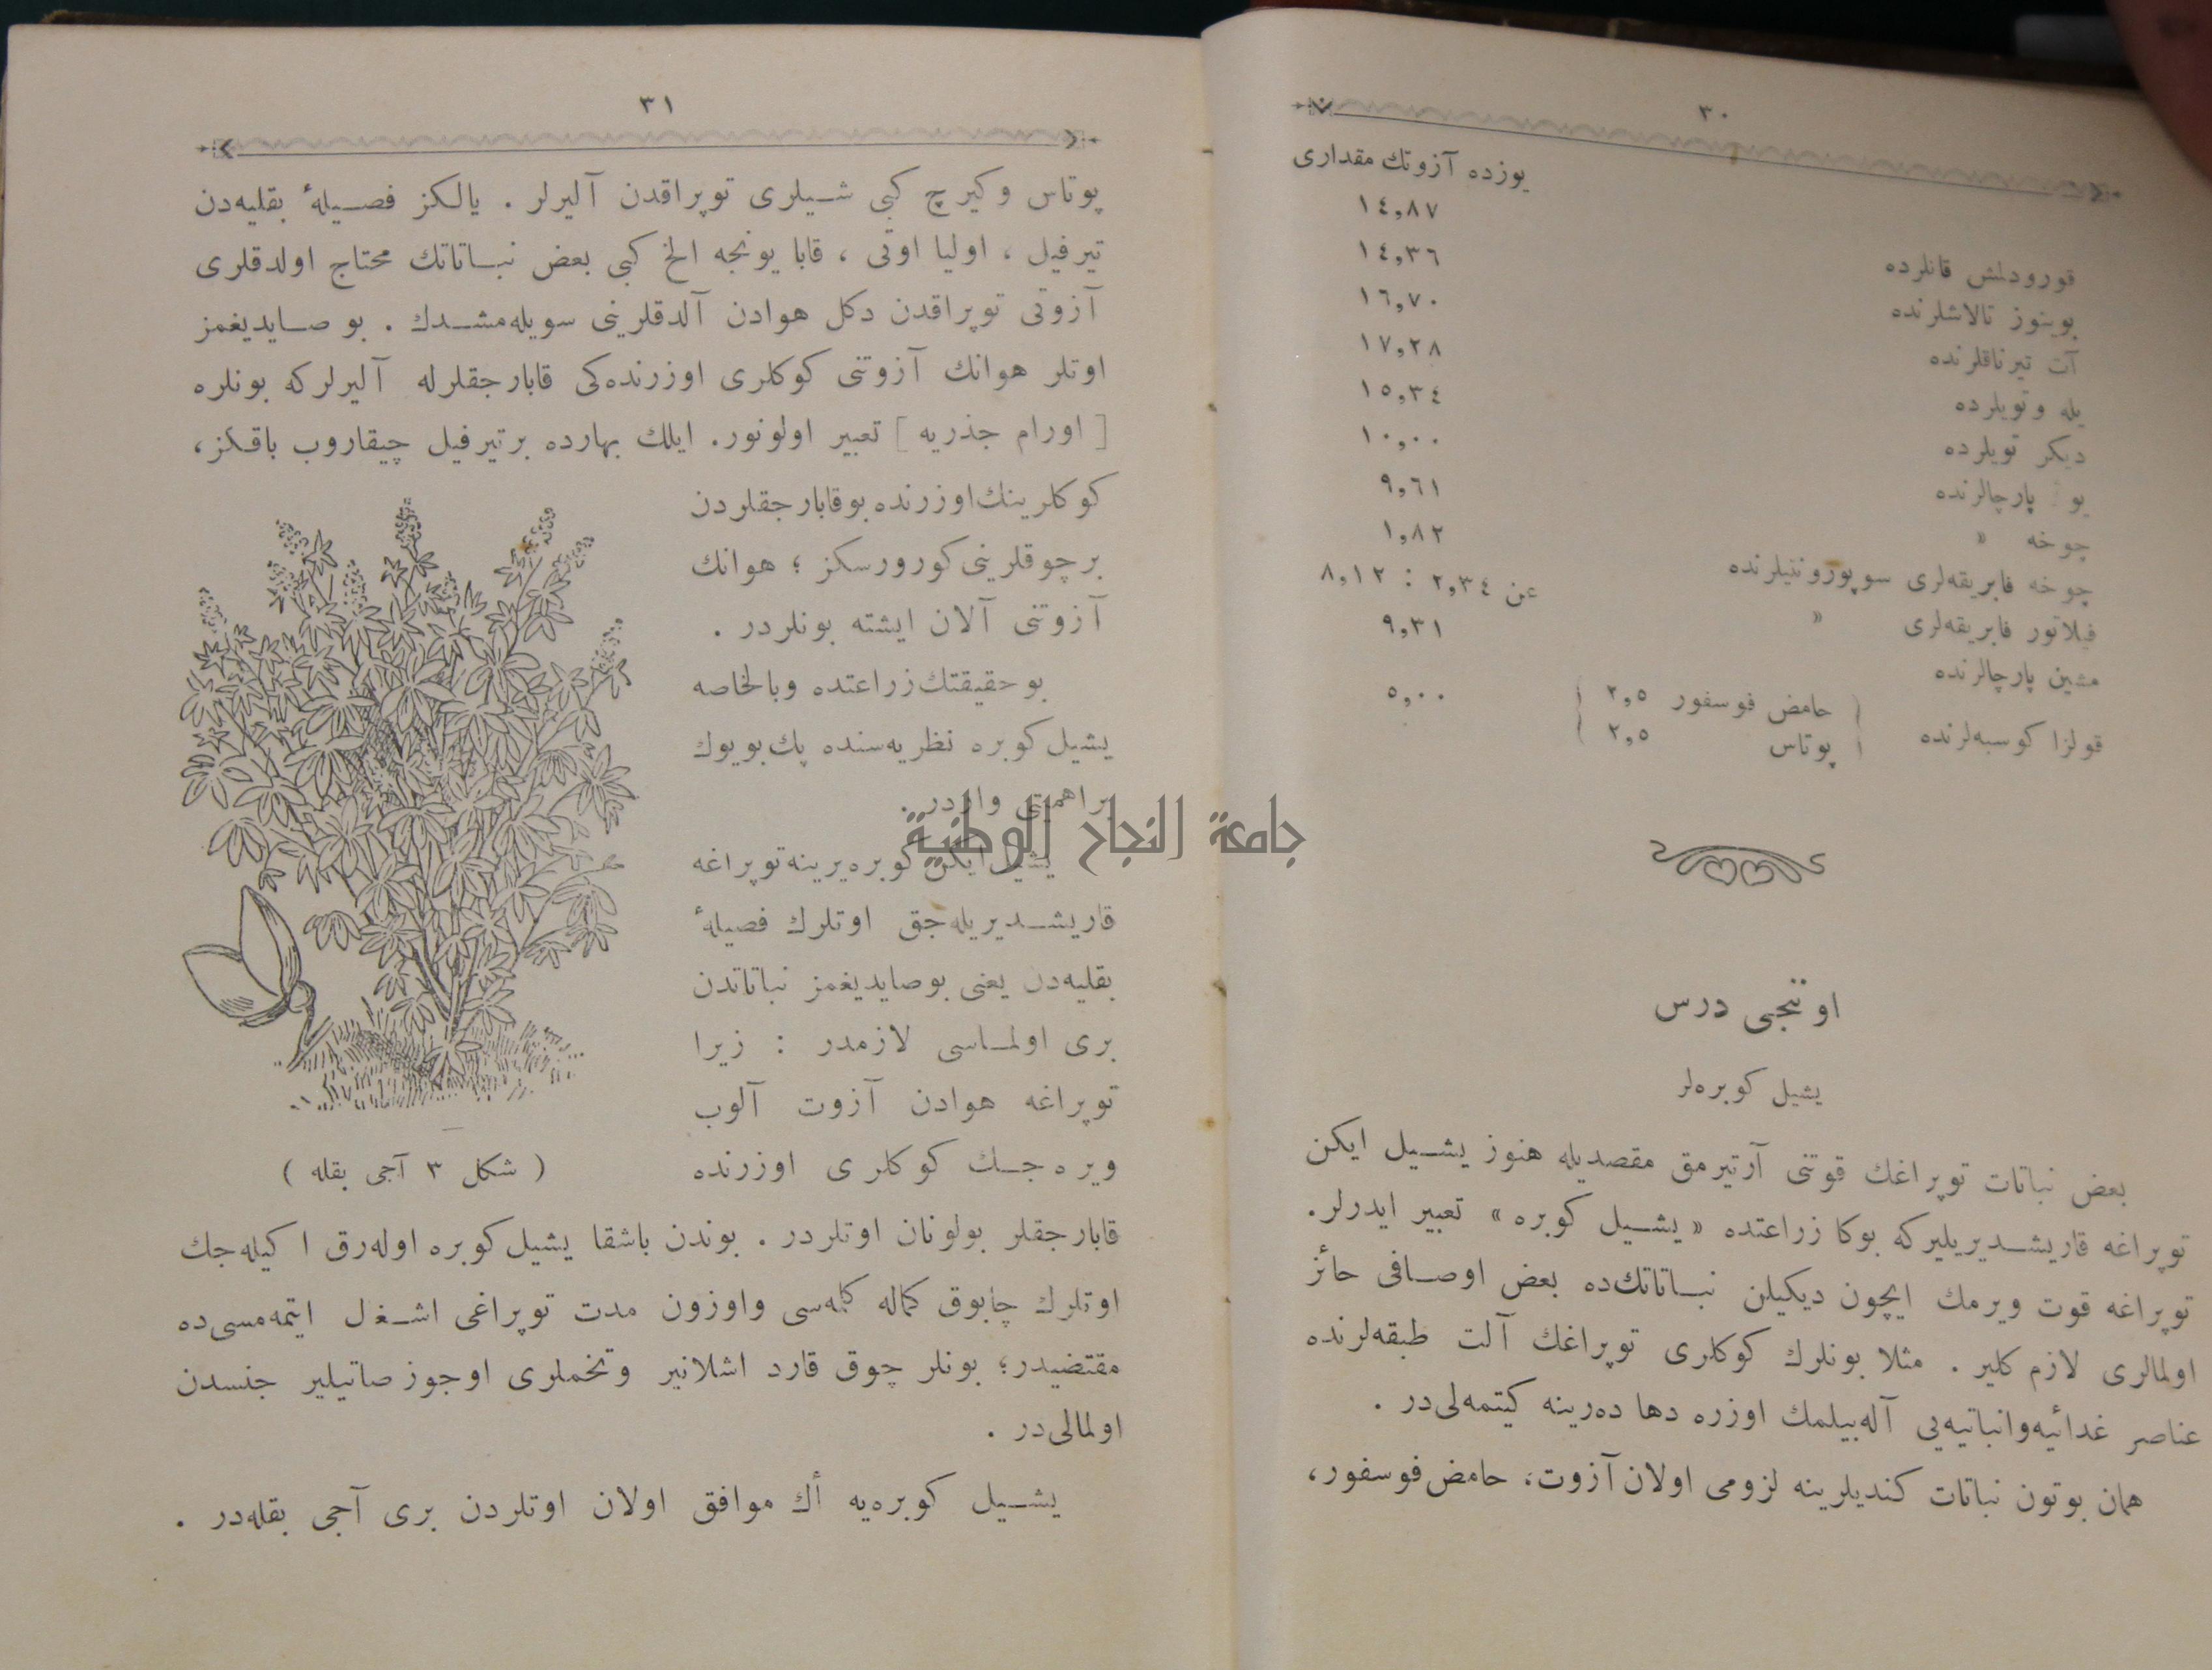 ٣٠
يوزده آزوتك مقداری
قورودلمش قانلرده ١٤,٨٧
بوينوز تالاشلرنده ١٤,٣٦
آت تيرناقلرنده ١٦,٧٠
يله وتويلرده ١٧,٢٨
ديكر تويلرده ١٥,٣٤
پارچالرنده ١٠,٠٠
چوخه » ٩,٦١
چوخه فابريقه‌لری سوپوروننيلرنده ١,٨٢
فيلاتور فابريقه‌لری » عن ٢,٣٤ : ٨,١٢
مشين پارچالرنده ٩,٣١
قولزا كوسبه‌لرنده ( حامض فوسفور ٢,٥ ) ٥,٠٠
پوتاس ٢,٥
اوننجی درس
يشيل كوبره‌لر
بعض نباتات توپراغك قوتنی آرتيرمق مقصديله هنوز يشيل ايكن
توپراغه قاريشديريليركه بوكا زراعتده « يشيل كوبره » تعبير ايدرلر.
توپراغه قوت ويرمك ايچون ديكيلن نباتاتك‌ده بعض اوصافی حائز
اولمالری لازم كلير . مثلا بونلرك كوكلری توپراغك آلت طبقه‌لرنده
عناصر غدائيه‌وانباتيه‌يی آله‌بيلمك اوزره دها ده‌رينه كيتمه‌لی‌در .
همان بوتون نباتات كنديلرينه لزومی اولان آزوت، حامض فوسفور،
٣١
پوتاس وكيرچ كبی شيلری توپراقدن آليرلر . يالكز فصيلهٔ بقليه‌دن
تيرفيل ، اوليا اوتی ، قابا يونجه الخ كبی بعض نباتاتك محتاج اولدقلری
آزوتی توپراقدن دكل هوادن آلدقلرينی سويله‌مشدك . بو صايديغمز
اوتلر هوانك آزوتنی كوكلری اوزرنده‌كی قابارجقلرله آليرلركه بونلره
[ اورام جذريه ] تعبير اولونور. ايلك بهارده برتيرفيل چيقاروب باقكز،
كوكلرينك اوزرنده بوقابارجقلردن
برچوقلرينی كورورسكز ؛ هوانك
آزوتنی آلان ايشته بونلردر .
بوحقيقتك زراعتده وبالخاصه
يشيل كوبره نظريه‌سنده پك بويوك
براهميتی واردر .
يشيل ايكن كوبره يرينه توپراغه
قاريشديريله‌جق اوتلرك فصيلهٔ
بقليه‌دن يعنی بوصايديغمز نباتاتدن
بری اولماسی لازمدر : زيرا
توپراغه هوادن آزوت آلوب
ويره جك كوكلری اوزرنده
( شكل ٣ آجی بقله )
قابارجقلر بولونان اوتلردر . بوندن باشقا يشيل كوبره اوله‌رق اكيله‌جك
اوتلرك چابوق كماله كلمه‌سی واوزون مدت توپراغی اشغل ايتمه‌مسی‌ده
مقتضيدر؛ بونلر چوق قارد اشلانير وتخملری اوجوز صاتيلير جنسدن
اولمالی‌در .
يشيل كوبره‌يه أك موافق اولان اوتلردن بری آجی بقله‌در .
جامعة النجاح الوطنية